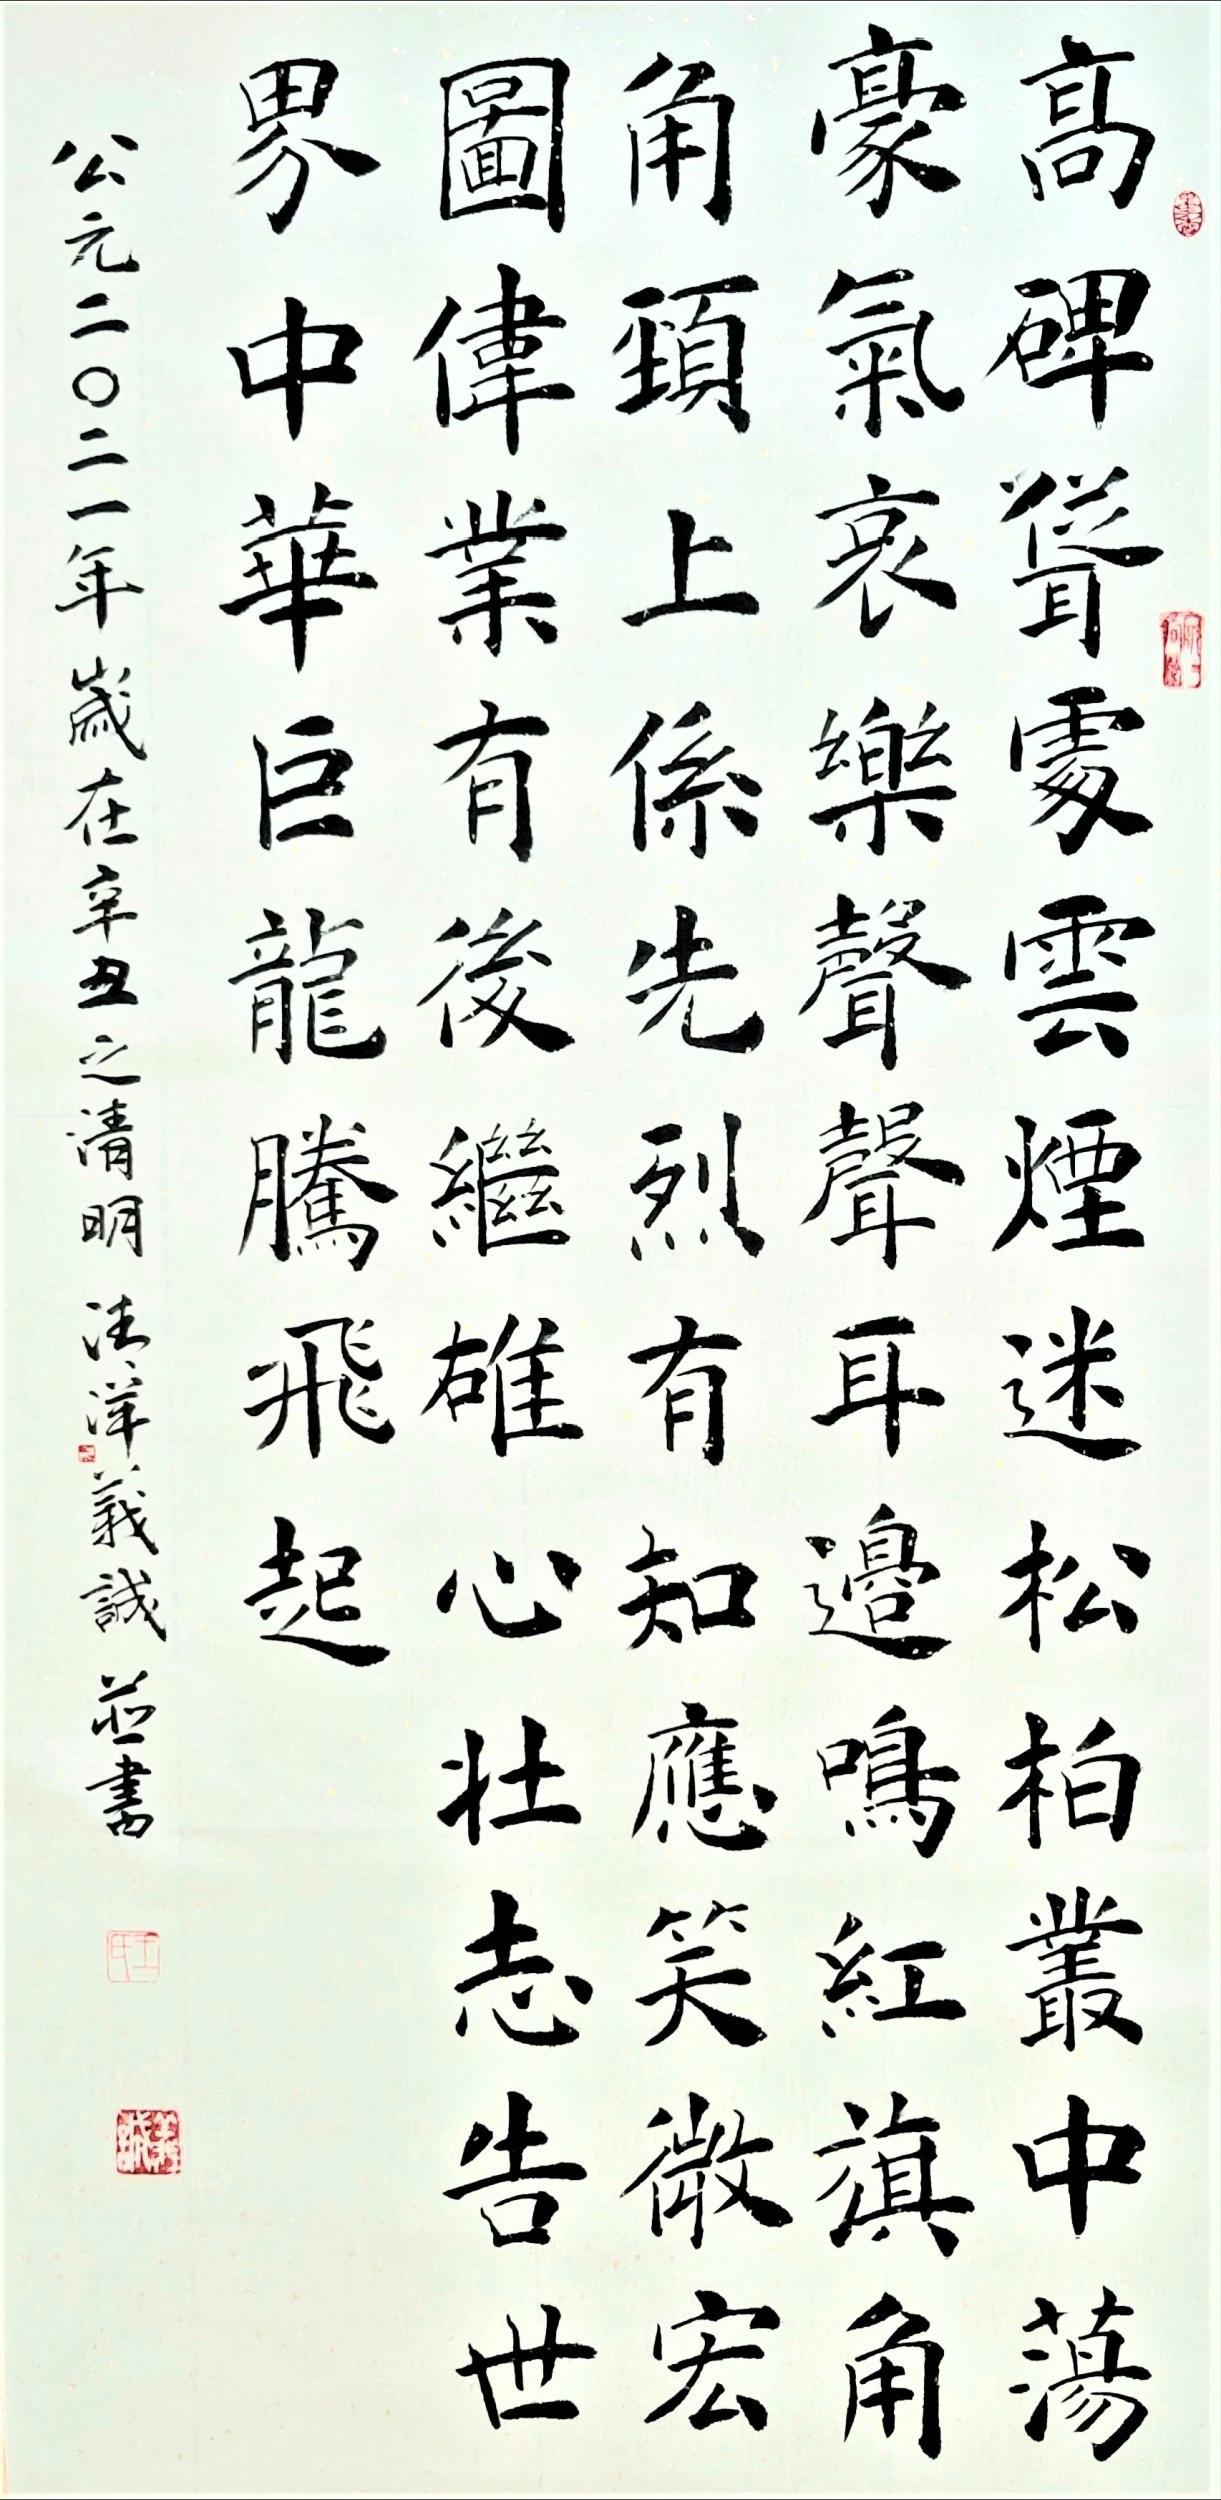 高碑聳處雲煙迷松柏叢中蕩
豪氣哀樂聲聲耳邊鳴紅旗角
角頸上係先烈有知應笑微宏
圖偉業有後繼雄心壯志告世
界中華巨龍騰飛起
公元二〇二一年歲在辛丑之清明 洋義誠並書
義誠